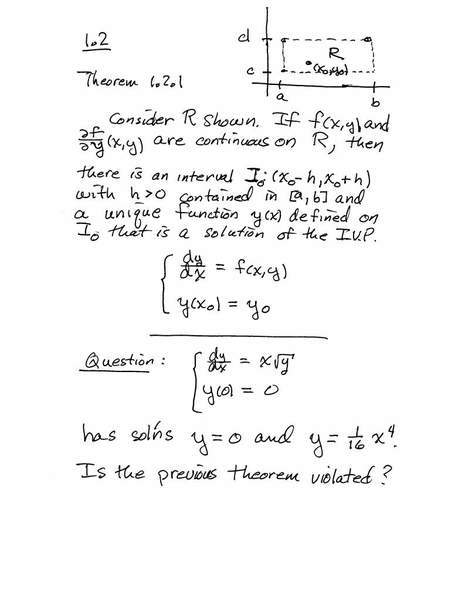 1.2
d
R
(x₀,y₀)
c
a
b
Theorem 1.2.1
Consider R shown. If f(x,y) and
∂f/∂y (x,y) are continuous on R, then
there is an interval I₀: (x₀-h, x₀+h)
with h>0 contained in [a,b] and
a unique function y(x) defined on
I₀ that is a solution of the I.V.P.
dy/dx = f(x,y)
y(x₀) = y₀
Question: dy/dx = x√y
y(0) = 0
has sol'ns y=0 and y=1/16 x⁴.
Is the previous theorem violated?